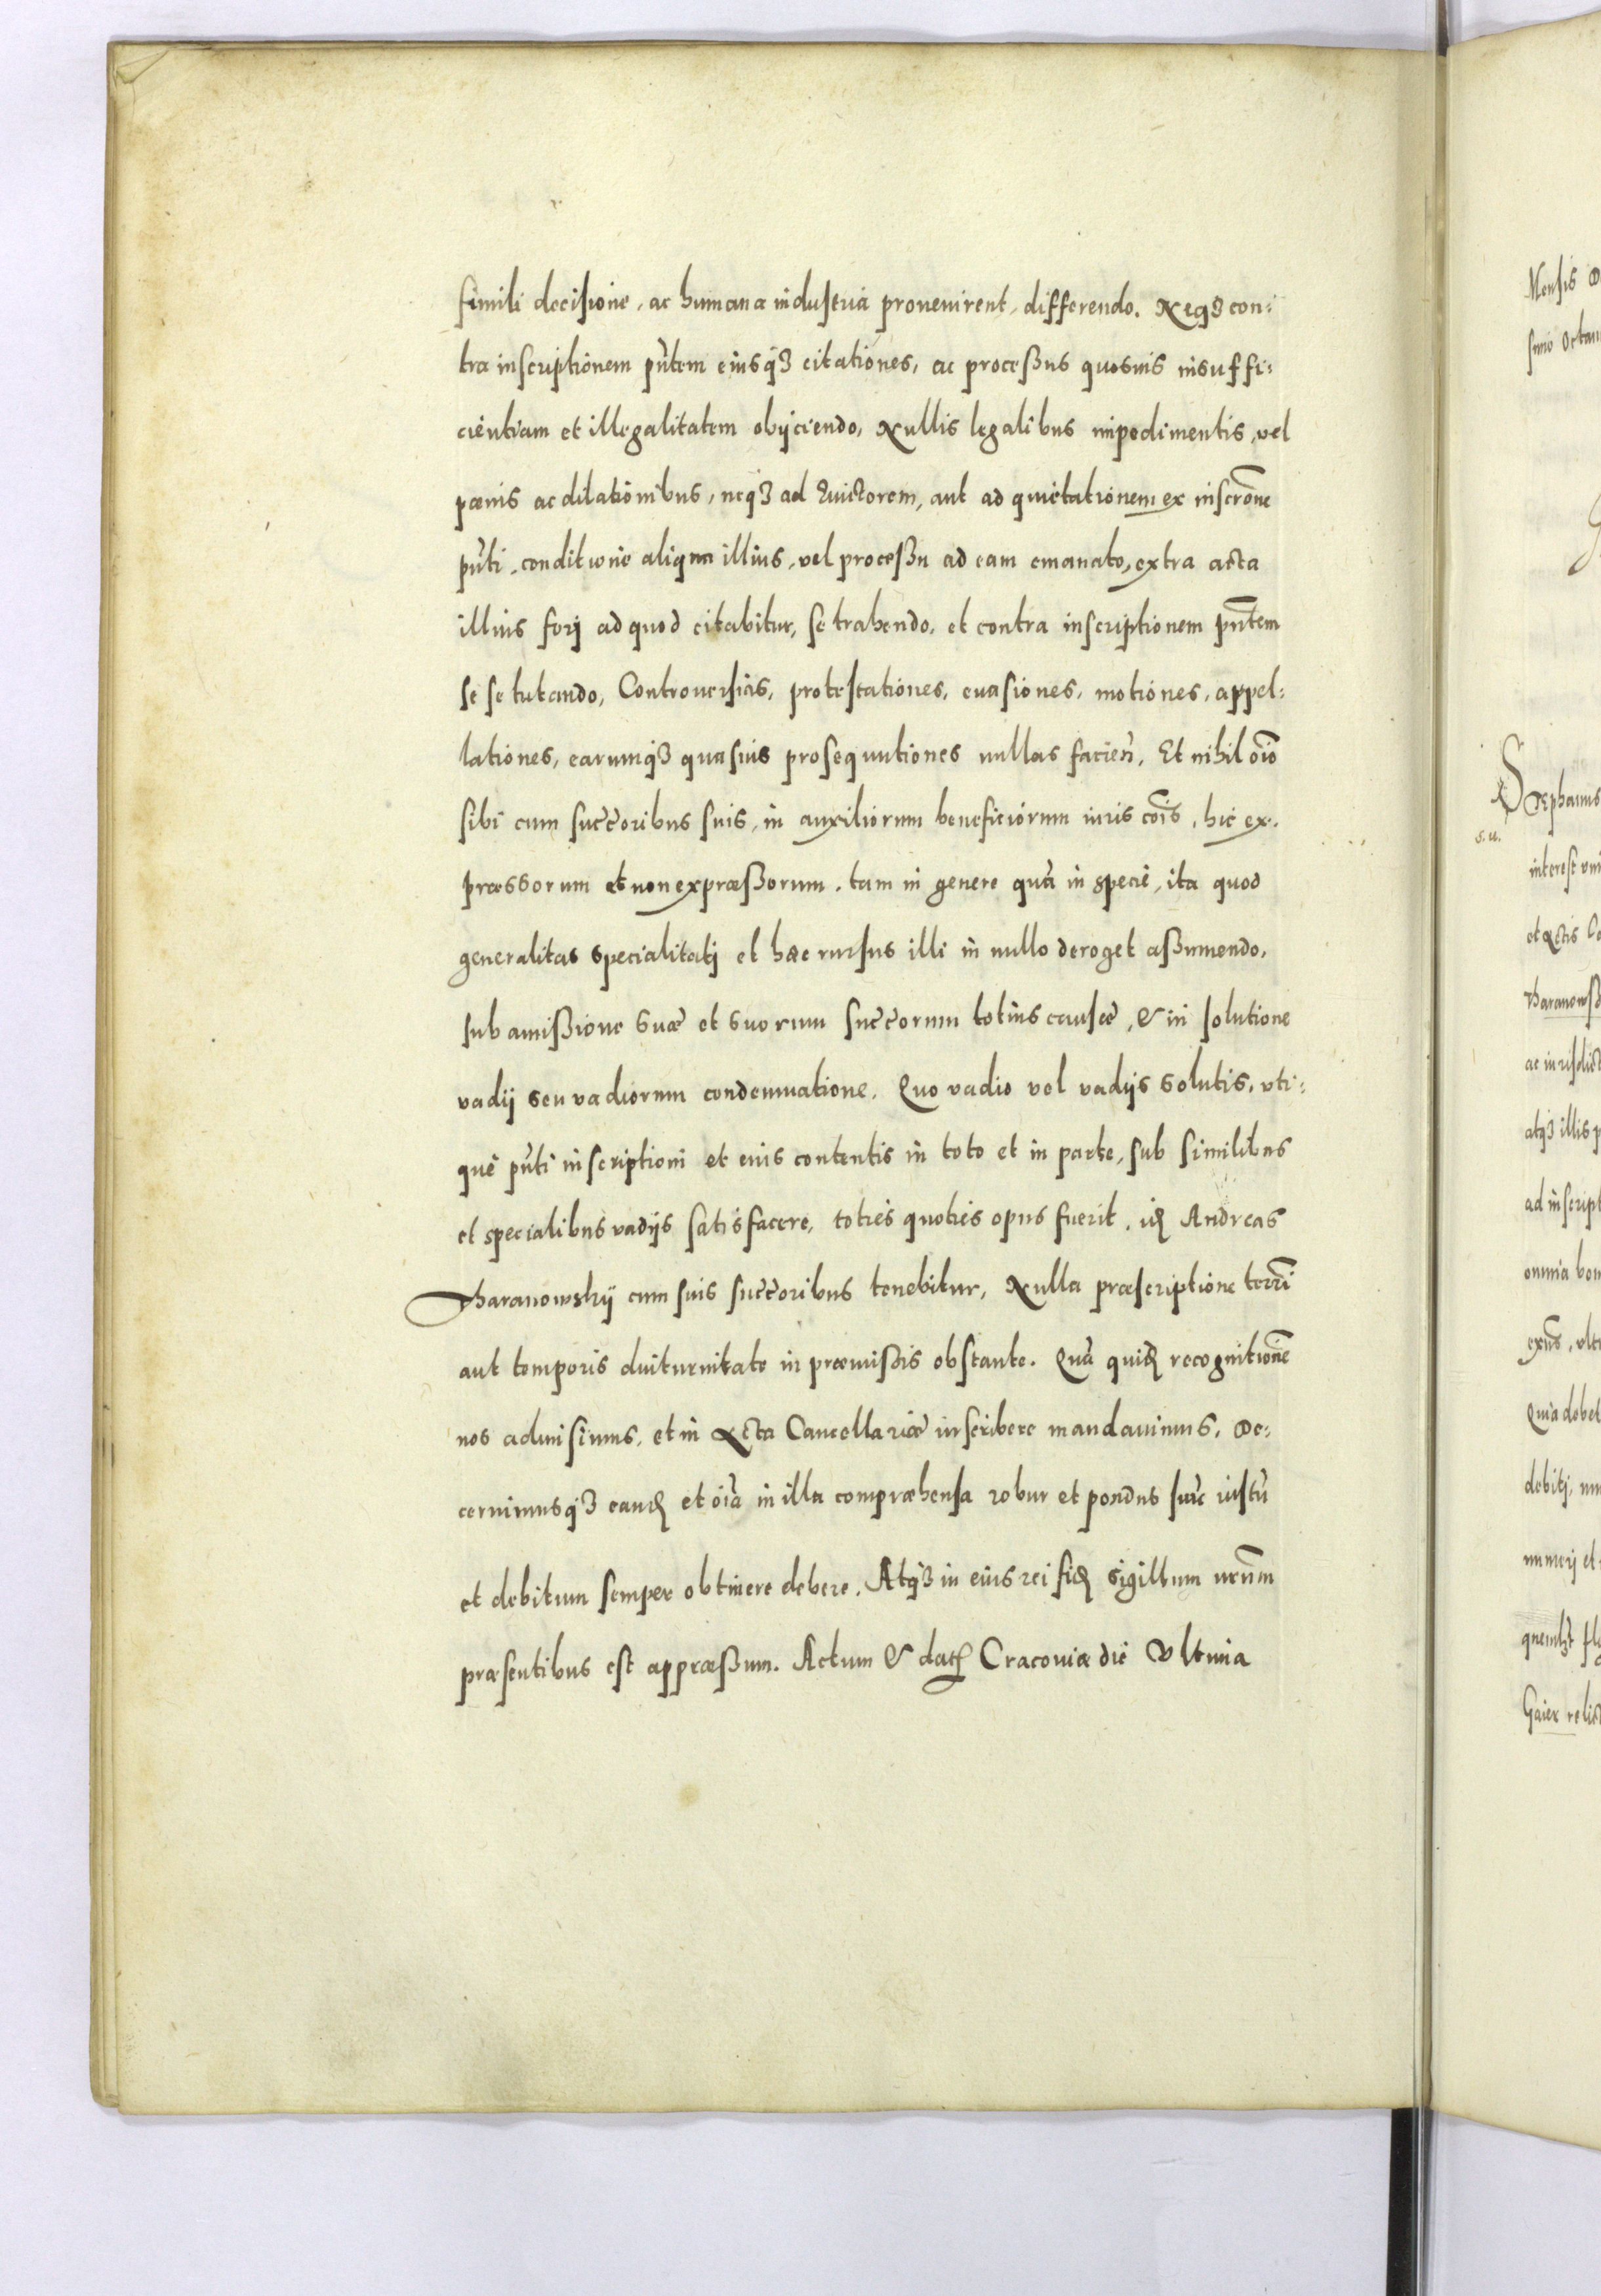 simili decisione, ac humana industria provenirent, differendo. Neqꝫ con:
tra inscriptionem pn̄tem eiusqꝫ citationes, ac proceßus quosuis insuffi:
cientiam et illegalitatem obijciendo, Nullis legalibus impedimentis, vel
pœnis ac dilationibus, neqꝫ ad Euictorem, aut ad quietationem ex inscrōne
pn̄ti, conditione aliqua illius, vel proceßu ad eam emanato, extra acta
illius forj ad quod citabitur, se trahendo, et contra inscriptionem pn̄tem
se se tutando, Controuersias, protestationes, euasiones, motiones, appel:
lationes, earumqꝫ quasuis prosequutiones nullas facien̄. Et nihil oīo
sibi cum succ̄oribus suis, in auxiliorum beneficiorum iuris cōis, hic ex.
præssorum et non expræßorum, tam in genere quā in specie, ita quod
generalitas specialitatj et hæc rursus illi in nullo deroget aßumendo,
sub amißione suæ et suorum succ̄orum totius causæ, & in solutione
vadij seu vadiorum condemnatione. Quo vadio vel vadijs solutis, vti:
que pn̄ti inscriptioni et eius contentis in toto et in parte, sub similibus
et specialibus vadijs satisfacere, toties quoties opus fuerit, idē Andreas
Tharanowskij cum suis succ̄oribus tenebitur, Nulla præscriptione terrī
aut temporis diuturnitate in præmißis obstante. Quā quidē recognitionē
nos admisimus, et in Acta Cancellariæ inscribere mandauimus, De:
cernimusqꝫ eandē et oīa in illa compræhensa robur et pondus suū iustū
et debitum semper obtinere debere. Atqꝫ in eius rei fidē sigillum nrūm
præsentibus est appræßum. Actum & datū Cracouiæ die Vltima